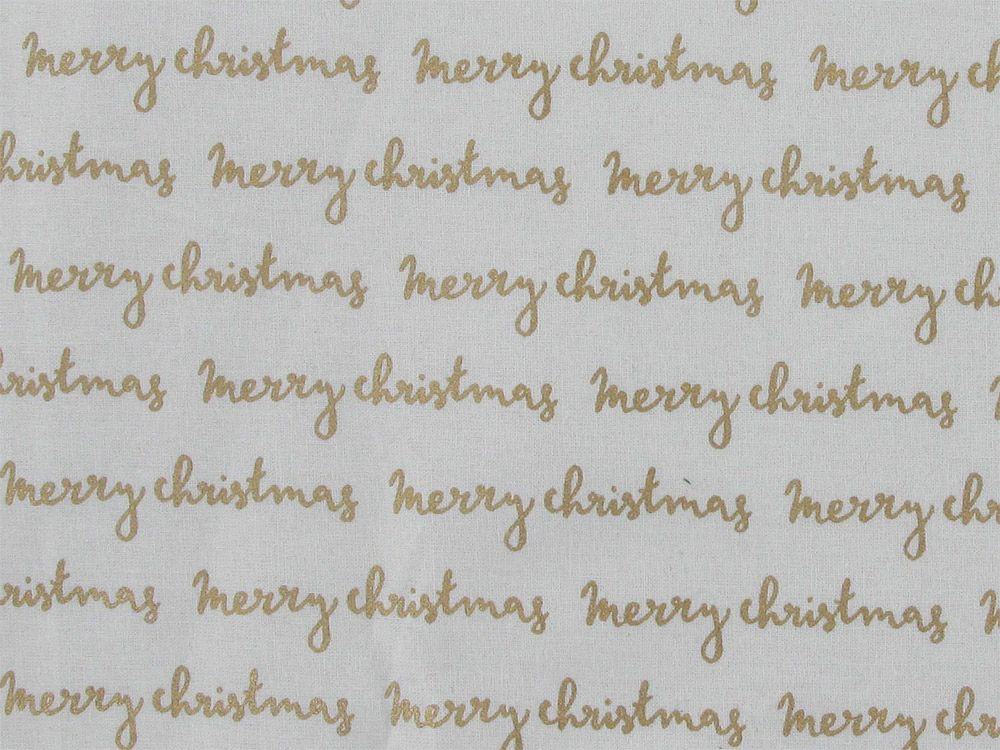 Merry christmas Merry christmas Merry ch
hristmas Merry christmas Merry christmas
Merry christmas Merry christmas Merry ch
ristmas Merry christmas Merry christmas
Merry christmas Merry christmas Merry chr
ristmas Merry christmas Merry christmas
Merry christmas Merry christmas Merry chr